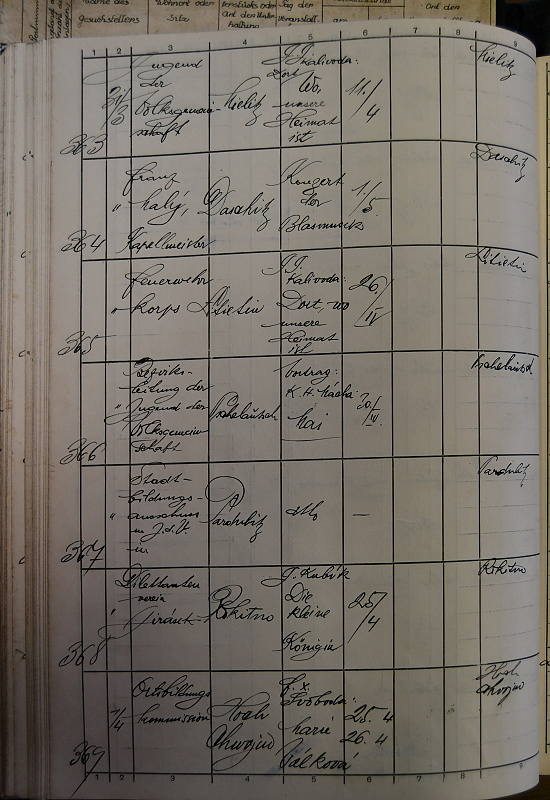 Name des
gesuchstellens
Wohnort oder
Sitz
oder
Art der Unter-
haltung
Tag der
Veranstalt.
Ort der
1 2 3 4 5 6 7 8 9
363
31/3
Jugend
der
Volksgemein-
schaft
Kielitz
J.J. Kalivoda:
Dort
wo,
unsere
Heimat
ist
11./4
Kielitz
364
"
Franz
Kapellmeister
Daschitz
Konzert
der
Blasmusik
1/5.
Daschitz
365
"
Feuerwehr
korps
J.J.
Kalivoda:
Dort, wo
unsere
Heimat
ist
26/IV
366
"
Bezirks-
leitung der
Jugend der
Volksgemein
schaft
Vortrag:
K. H. Macha
Mai
367
"
Stadt-
bildungs-
ausschuss
Pardubitz
dtto
—
Pardubitz
368
"
Dilettanten
verein
Jirásek
Rokitno
J. Kubík
Die
kleine
Königin
25/4
Rokitno
369
1/4
Ortsbildungs
kommission
Hoch
Chwojno
F. X.
Svoboda:
Marie
Válková
25. 4
26. 4
Hoch
Chwojno
1 2 3 4 5 6 7 8 9